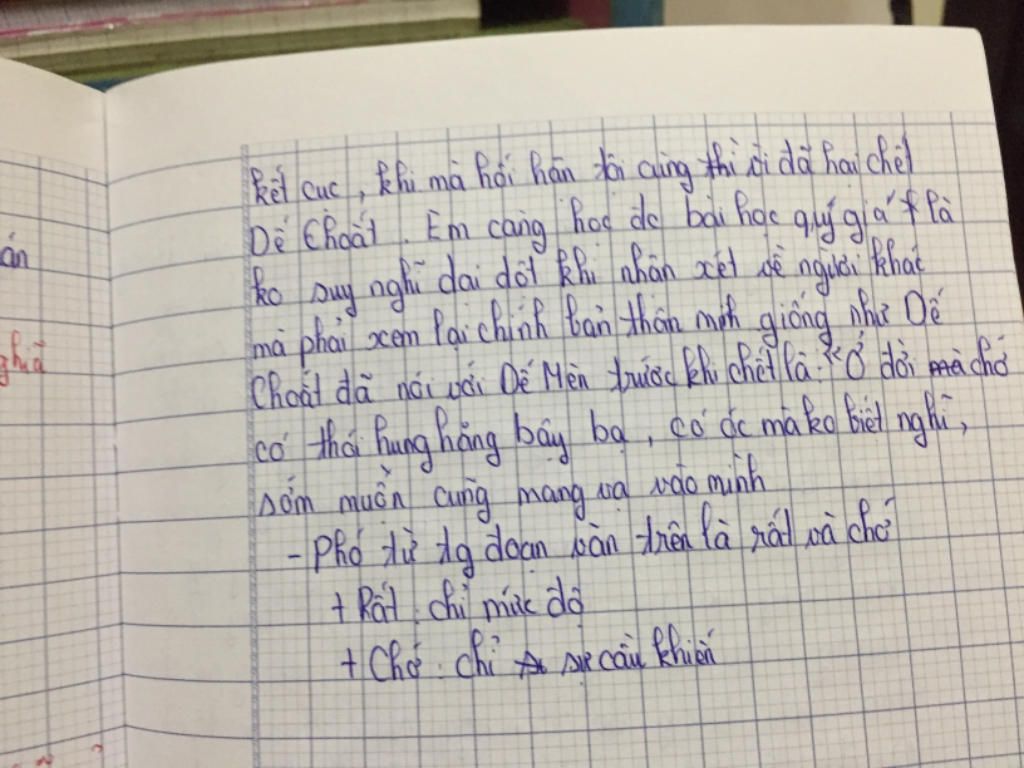 kết cục, khi mà hối hận tôi cũng thì ôi đã hai chết
Dế Choắt. Em càng học dc bài học quý giá là
ko suy nghĩ dại dột khi nhận xét về người khác
mà phải xem lại chính bản thân mình giống như Dế
Choắt đã nói với Dế Mèn trước khi chết là: "Ở đời chớ
có thói hung hăng bậy bạ, có óc mà ko biết nghĩ,
sớm muộn cũng mang vạ vào mình
- Phó từ tg đoạn văn trên là rất và chớ
+ Rất: chỉ mức độ
+ Chớ: chỉ sự cầu khiến
án
nghĩa